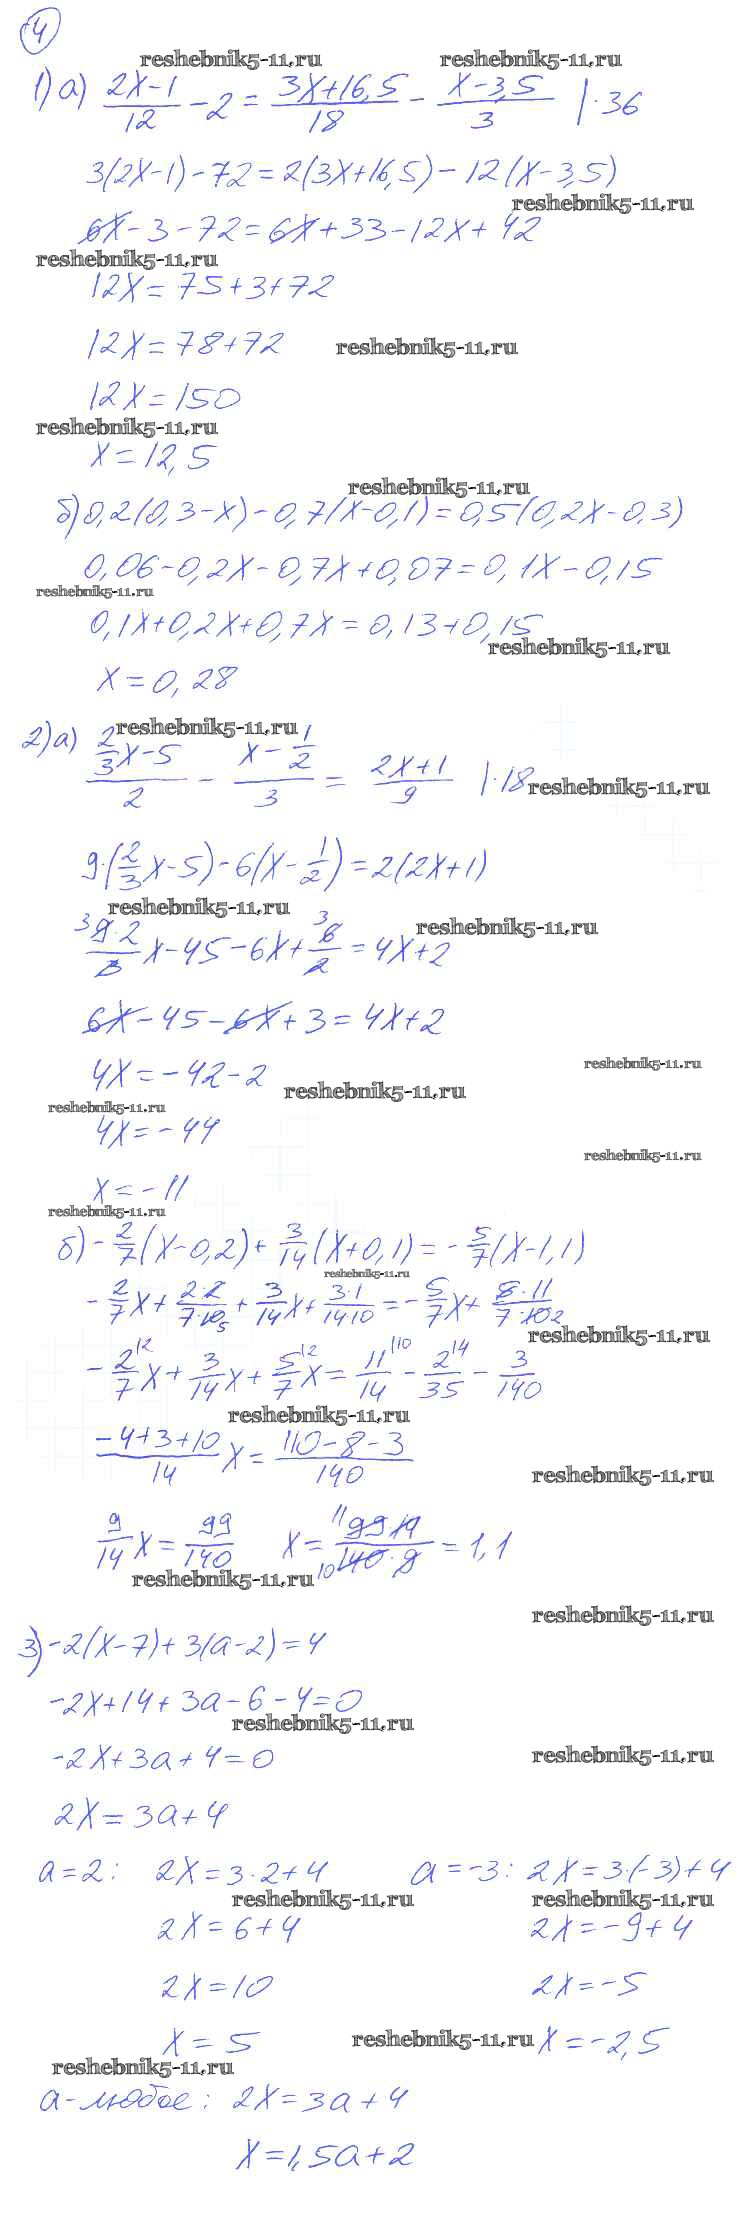 4
reshebnik5-11.ru reshebnik5-11.ru
1) а) (2x-1)/12 - 2 = (3x+16,5)/18 - (x-3,5)/3 |·36
3(2x-1)-72=2(3x+16,5)-12(x-3,5)
reshebnik5-11.ru
6x-3-72=6x+33-12x+42
reshebnik5-11.ru
12x=75+3+72
12x=78+72 reshebnik5-11.ru
12x=150
reshebnik5-11.ru
x=12,5
reshebnik5-11.ru
б) 0,2(0,3-x)-0,7(x-0,1)=0,5(0,2x-0,3)
0,06-0,2x-0,7x+0,07=0,1x-0,15
reshebnik5-11.ru
0,1x+0,2x+0,7x=0,13+0,15
reshebnik5-11.ru
x=0,28
reshebnik5-11.ru
2) а) (2/3x-5)/2 - (x-1/2)/3 = (2x+1)/9 |·18
reshebnik5-11.ru
9·(2/3x-5)-6(x-1/2)=2(2x+1)
reshebnik5-11.ru reshebnik5-11.ru
3 9·2/3 x-45-6x+ 3 6/2=4x+2
6x-45-6x+3=4x+2
reshebnik5-11.ru
4x=-42-2
reshebnik5-11.ru
reshebnik5-11.ru
4x=-44
reshebnik5-11.ru
x=-11
reshebnik5-11.ru
б) -2/7(x-0,2)+3/14(x+0,1)=-5/7(x-1,1)
reshebnik5-11.ru
-2/7x+2·2/7·10 5+3/14x+3·1/14·10=-5/7x+5·11/7·10 2
reshebnik5-11.ru
-2/7 |2 x+3/14x+5/7 |2 x=11/14 |10 -2/35 |4 -3/140
reshebnik5-11.ru
(-4+3+10)/14 x=(110-8-3)/140
reshebnik5-11.ru
9/14x=99/140 x= 11 99·14/10 140·9=1,1
reshebnik5-11.ru
reshebnik5-11.ru
3) -2(x-7)+3(a-2)=4
-2x+14+3a-6-4=0
reshebnik5-11.ru
-2x+3a+4=0 reshebnik5-11.ru
2x=3a+4
a=2: 2x=3·2+4 a=-3: 2x=3·(-3)+4
reshebnik5-11.ru reshebnik5-11.ru
2x=6+4 2x=-9+4
2x=10 2x=-5
x=5 reshebnik5-11.ru x=-2,5
reshebnik5-11.ru
a-любое: 2x=3a+4
x=1,5a+2